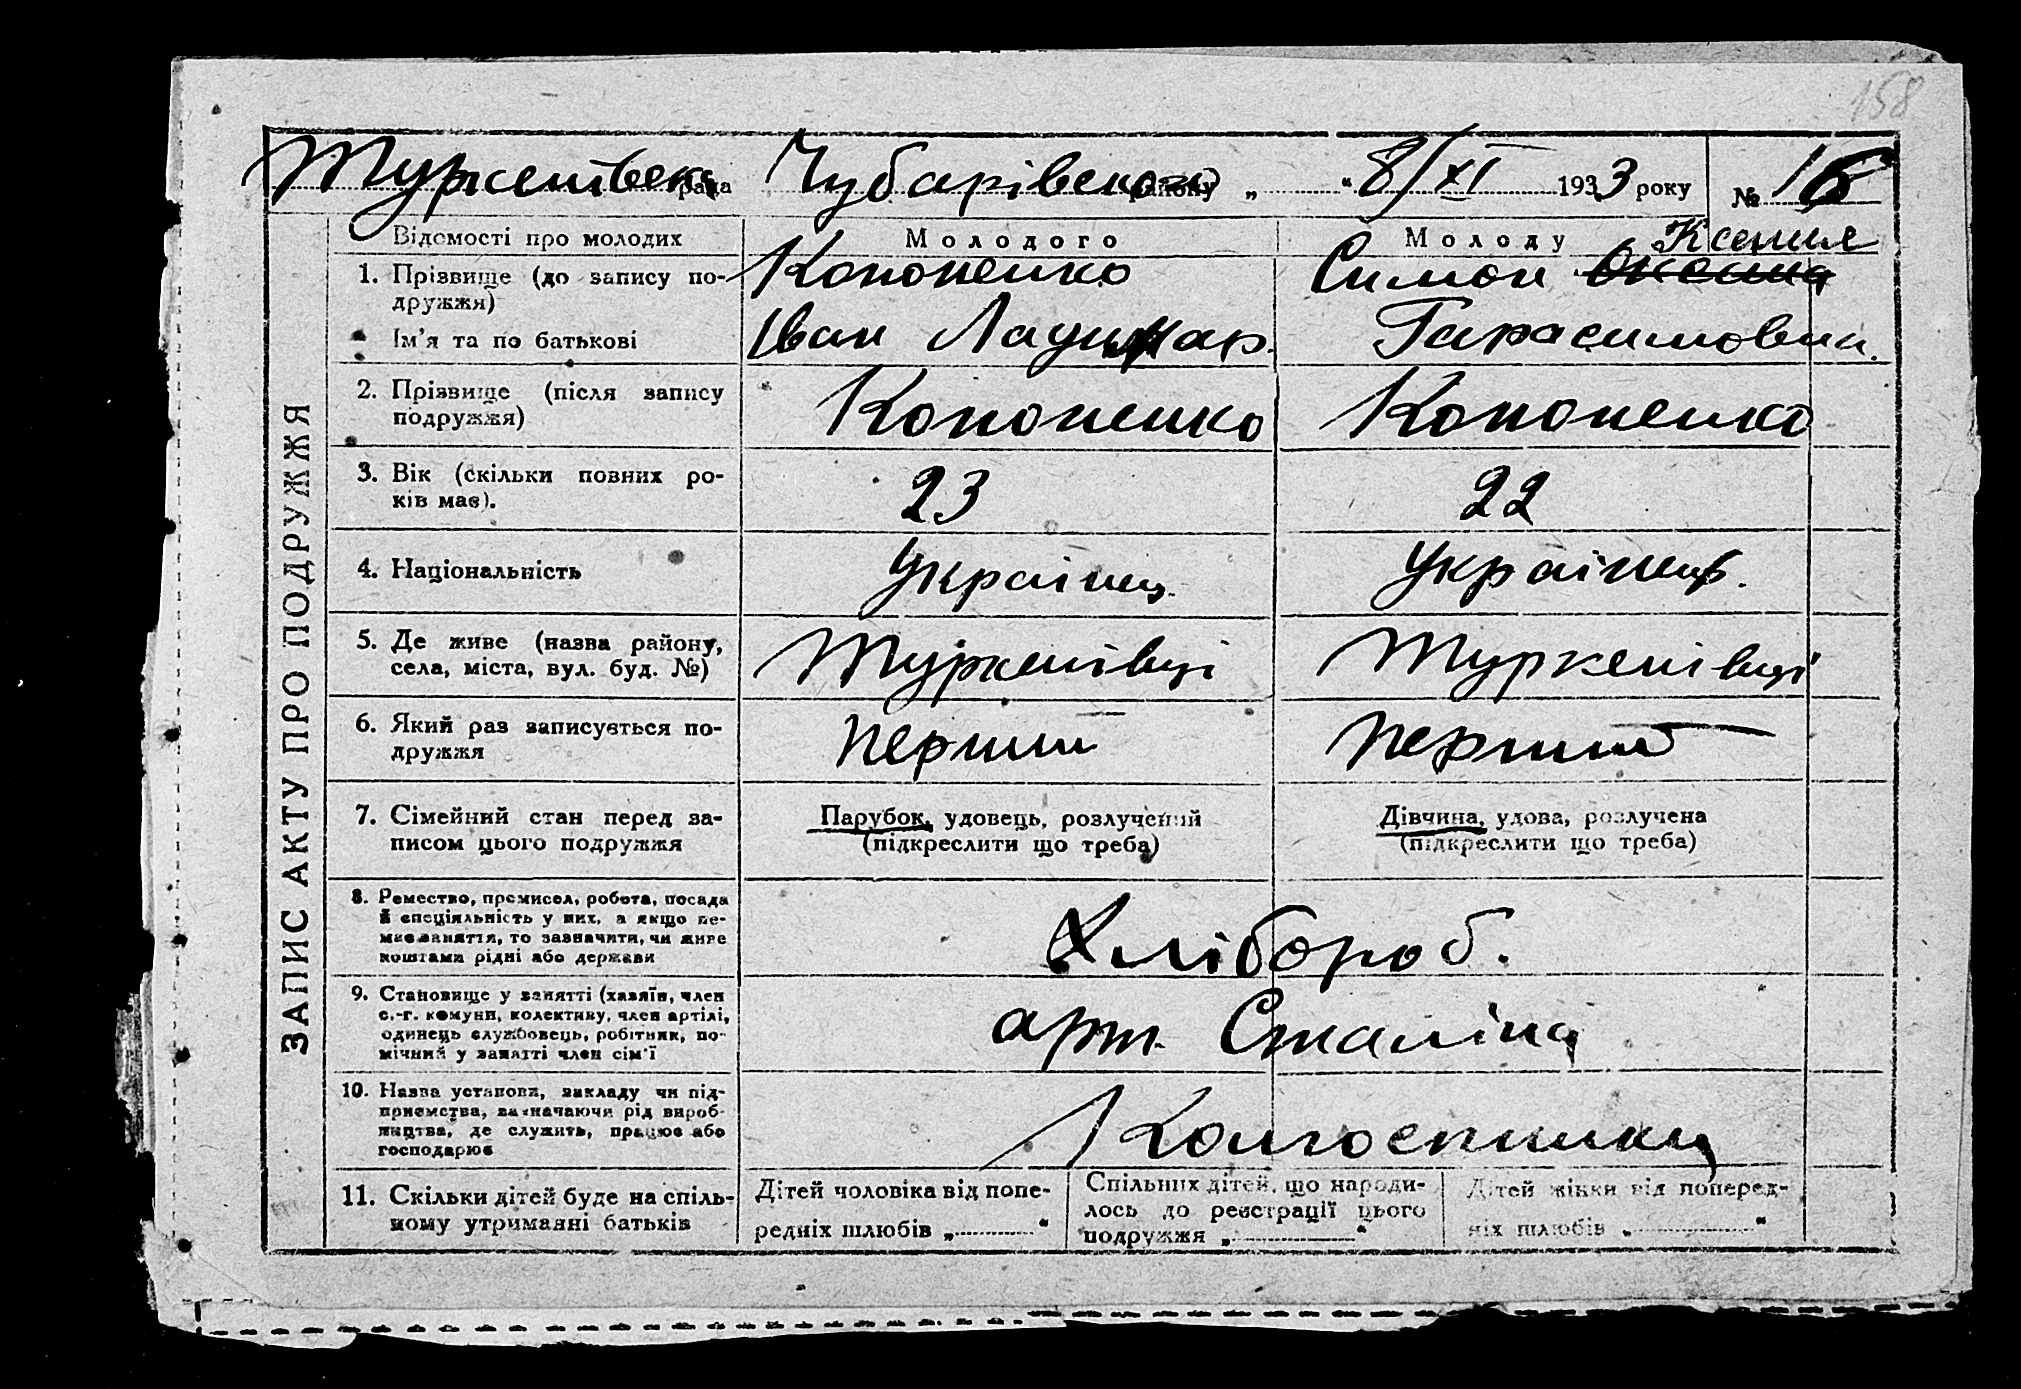 158
Туркенівська рада Чубарівського району „ “ 8/XI 1933 року № 16
Відомості про молодих
Молодого
Молоду Ксения
1. Прізвище (до запису по-
дружжя)
Кононенко
Симон Оксана
Ім'я та по батькові
Іван
Гарасимовна.
2. Прізвище (після запису
подружжя)
Кононенко
Кононенко
3. Вік (скільки повних ро-
ків має).
23
22
4. Національність
Українец.
Українець.
5. Де живе (назва району,
села, міста, вул. буд. №)
Туркенівці
Туркенівці
6. Який раз записується по-
дружжя
перший
перший
7. Сімейний стан перед за-
писом цього подружжя
Парубок, удовець, розлучений
(підкреслити що треба)
Дівчина, удова, розлучена
(підкреслити що треба)
8. Ремество, промисел, робота, посада
й спеціяльність у них, а якщо не-
має заняття, то зазначити, чи живе
коштами рідні або держави
Хлібороб.
9. Становище у занятті (хазяїн, член
с.-г. комуни, колективу, член артілі,
одинець службовець, робітник, по-
мічний у занятті член сім'ї
арт. Сталіна
10. Назва установи, закладу чи під-
приємства, зазначаючи рід вироб-
ництва, де служить, працює або
господарює
Колгоспники
11. Скільки дітей буде на спіль-
ному утриманні батьків
Дітей чоловіка від попе-
редніх шлюбів „ “
Спільних дітей, що народи-
лось до реєстрації цього
подружжя „ “
Дітей жінки від поперед-
ніх шлюбів „ “
ЗАПИС АКТУ ПРО ПОДРУЖЖЯ